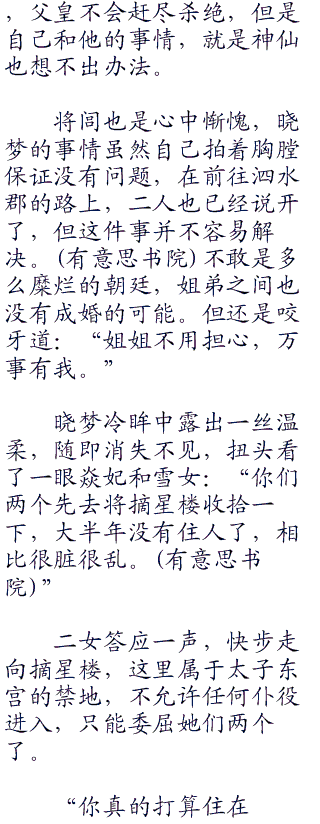 ，父皇不会赶尽杀绝，但是
自己和他的事情，就是神仙
也想不出办法。
将闾也是心中惭愧，晓
梦的事情虽然自己拍着胸膛
保证没有问题，在前往泗水
郡的路上，二人也已经说开
了，但这件事并不容易解
决。(有意思书院)不敢是多
么糜烂的朝廷，姐弟之间也
没有成婚的可能。但还是咬
牙道：“姐姐不用担心，万
事有我。”
晓梦冷眸中露出一丝温
柔，随即消失不见，扭头看
了一眼焱妃和雪女：“你们
两个先去将摘星楼收拾一
下，大半年没有住人了，相
比很脏很乱。(有意思书
院)”
二女答应一声，快步走
向摘星楼，这里属于太子东
宫的禁地，不允许任何仆役
进入，只能委屈她们两个
了。
“你真的打算住在